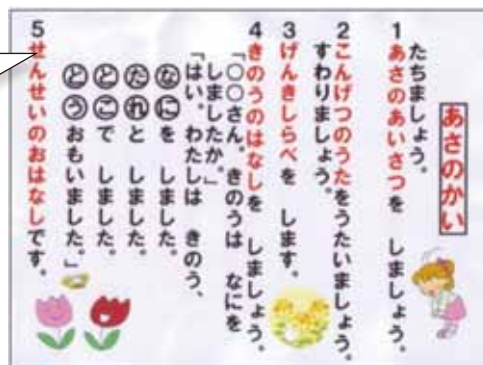 あさのかい
たちましょう。
1 あさのあいさつを しましょう。
2 こんげつのうたをうたいましょう。
すわりましょう。
3 げんきしらべを します。
4 きのうのはなしを しましょう。
「○○さん。きのうは なにを
しましたか。」
「はい。わたしは きのう、
なにを しました。
だれと しました。
どこで しました。
どうおもいました。」
5 せんせいのおはなしです。